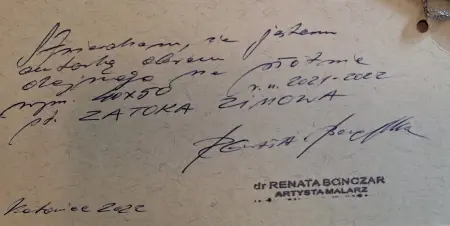 Stwierdzam, że jestem
autorką obrazu
olejnego na płótnie
wym. 40x50 r. w. 2021-2022
pt. ZATOKA ZIMOWA
dr RENATA BONCZAR
ARTYSTA MALARZ
Katowice 2022